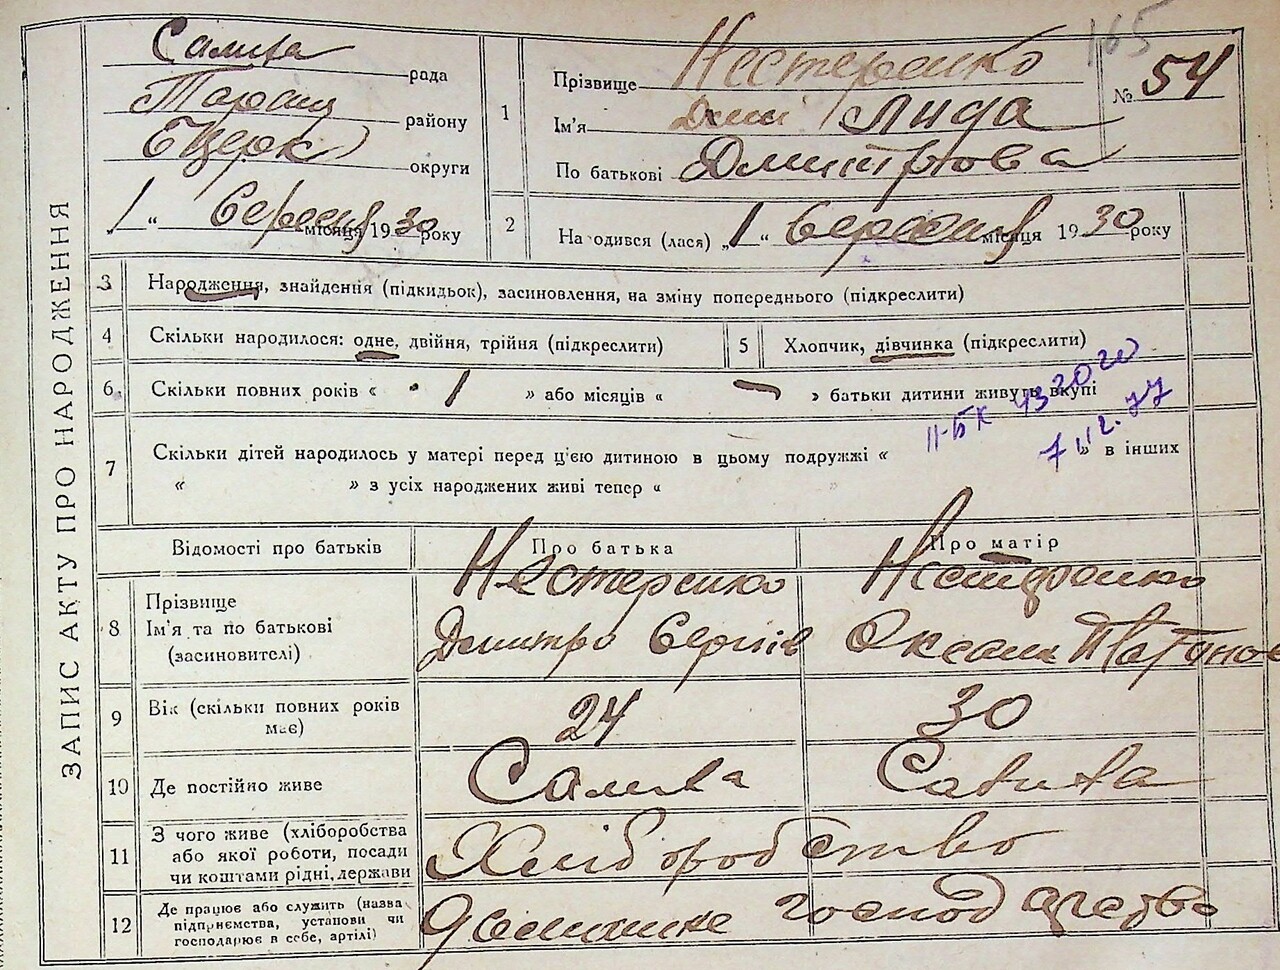 ЗАПИС АКТУ ПРО НАРОДЖЕННЯ
165
рада
району
округи
1 " Вересня місяця 1930 року
1 Прізвище Нестеренко
Ім'я Лида
По батькові Дмитрова
№ 54
2 Народився (лася) „1 “ Вересня місяця 1930 року
3 Народження, знайдення (підкидьок), засиновлення, на зміну попереднього (підкреслити)
4 Скільки народилося: одне, двійня, трійня (підкреслити)
5 Хлопчик, дівчинка (підкреслити)
6 Скільки повних років « 1 » або місяців « » батьки дитини живуть вкупі
II-БК
7 Скільки дітей народилось у матері перед ц'єю дитиною в цьому подружжі « » в інших
« » з усіх народжених живі тепер « »
Відомості про батьків
Про батька
Про матір
8 Прізвище
Ім'я та по батькові
(засиновителі)
Нестеренко
Дмитро Сергіїв
Нестеренко
Оксана
9 Вік (скільки повних років
має)
24
30
10 Де постійно живе
11 З чого живе (хліборобства
або якої роботи, посади
чи коштами рідні, держави
Хліборобство
12 Де працює або служить (назва
підприємства, установи чи
господарює в себе, артілі)
господарство